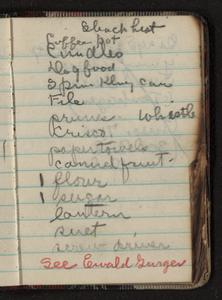 Check List
Coffee Pot
Candles
Dog food
File
prunes Whistle
Crisco
paper towels
canned fruit
1 flour
1 sugar
lantern
suet
screw driver
See Ewald Gurger